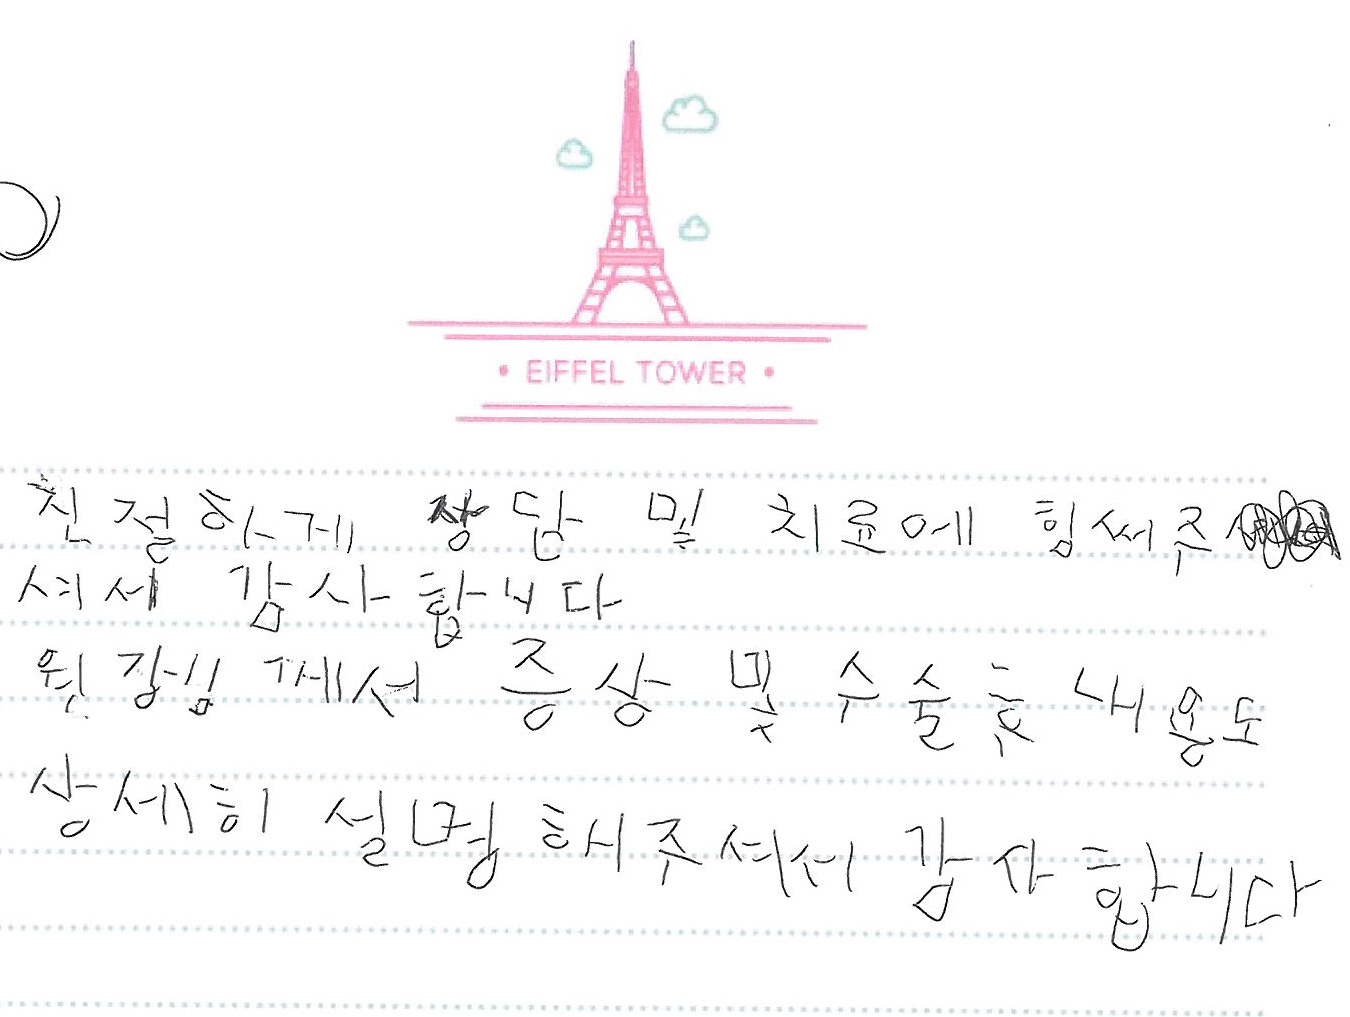 EIFFEL TOWER
친절하게 상담 및 치료에 힘써주
셔서 감사합니다
원장님께서 증상 및 수술후 내용도
상세히 설명해주셔서 감사합니다